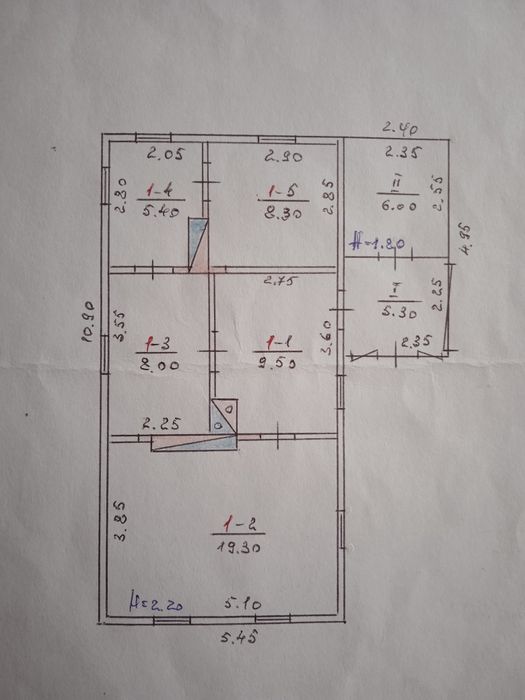 2.40
2.05
2.90
2.35
2.80
1-4
5.40
1-5
8.30
2.85
III
6.00
2.55
4.95
H=1.80
2.75
2.25
5.30
2.35
10.90
3.55
1-3
8.00
1-1
9.50
3.60
2.25
3.85
1-2
19.30
H=2.20
5.10
5.45